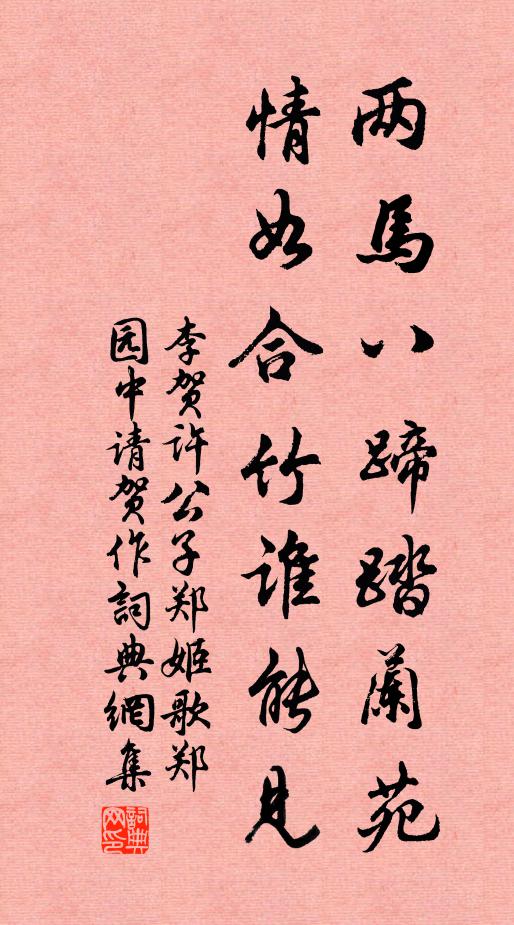 两馬八蹄踏蘭苑
情如合竹谁能見
李贺许公子郑姬歌郑
园中请贺作詞典網集
詞典
网印